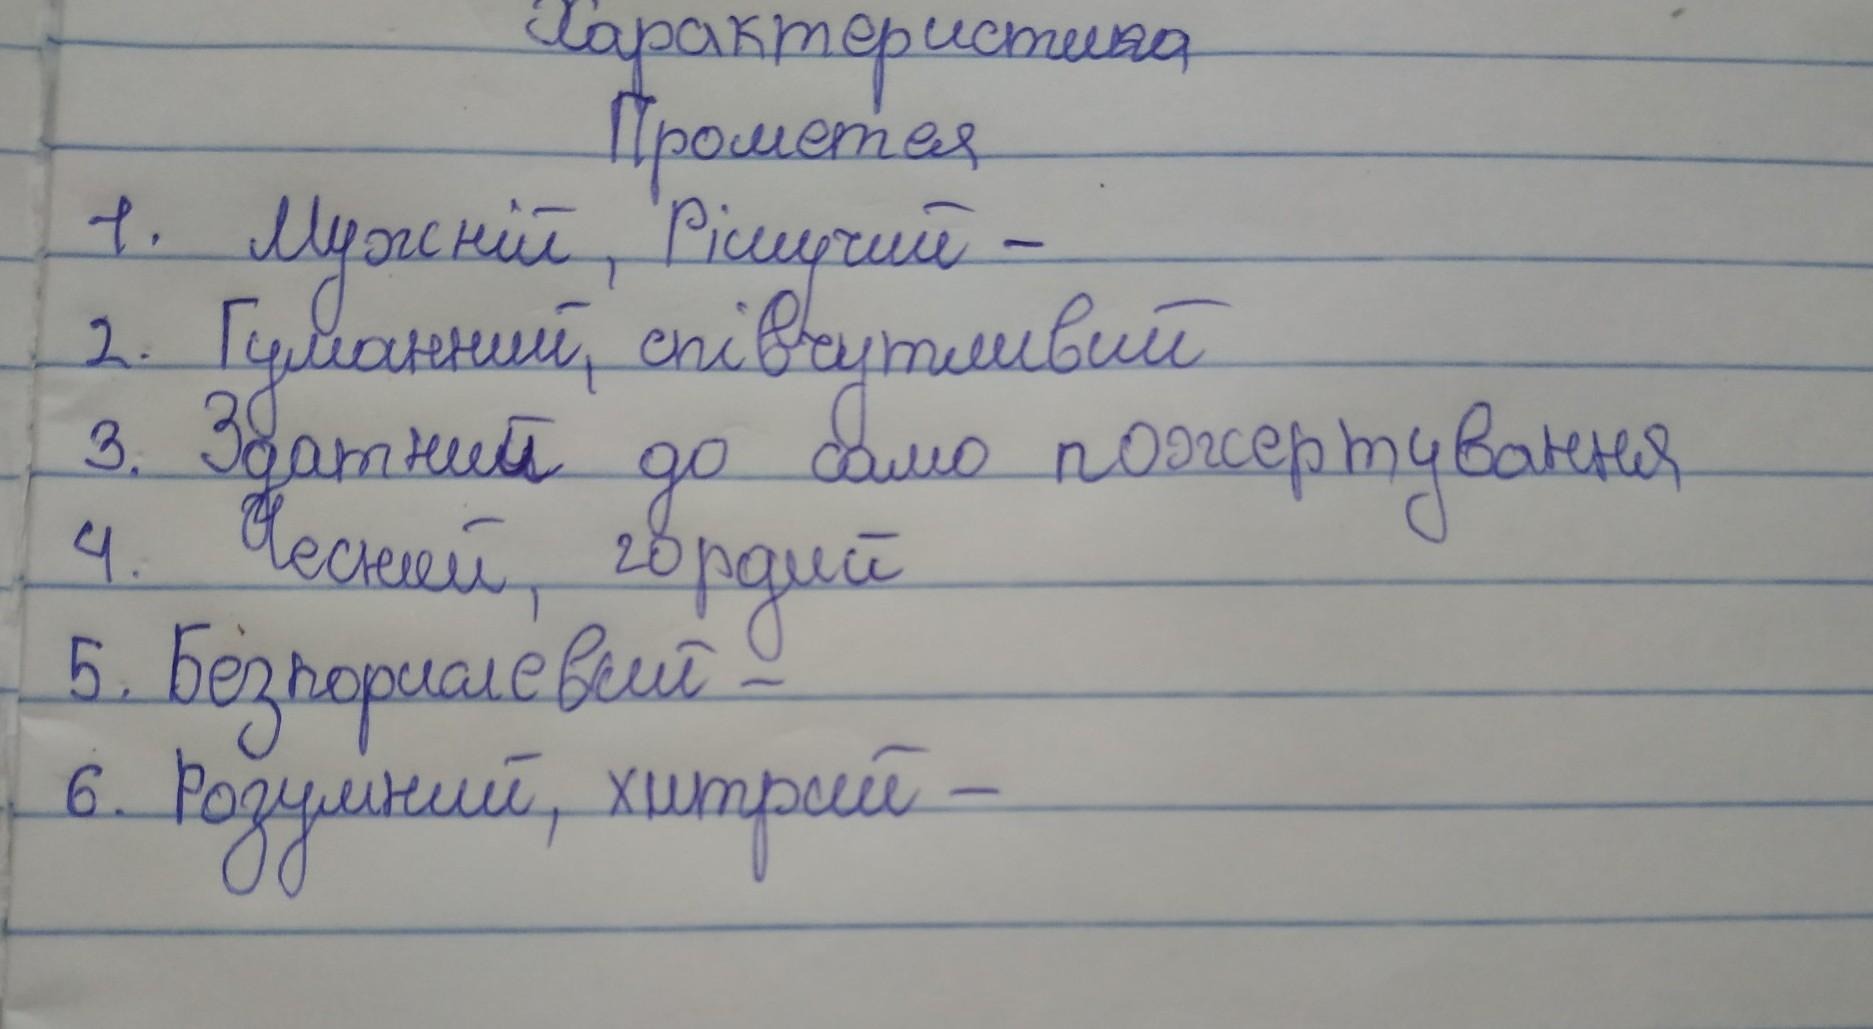 Характеристика
Прометея
1. Мужній, Рішучий -
2. Гуманний, співчутливий
3. Здатний до само пожертування
4. Чесний, гордий
5. Безкорисливий -
6. Розумний, хитрий -